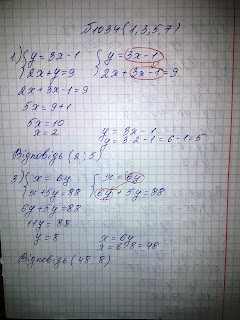 №1034 (1,3,5,7)
1) { y = 3x-1 { y = 3x-1
2x+y=9 2x+3x-1=9
2x+3x-1=9
5x=9+1
5x=10
x=2 y=3x-1
y=3·2-1=6-1=5
Відповідь (2;5)
3) { x=6y { x=6y
x+5y=88 6y+5y=88
6y+5y=88
11y=88
y=8 x=6y
x=6·8=48
Відповідь (48,8)